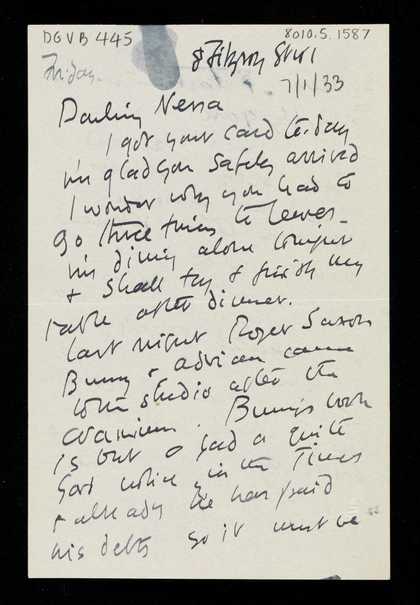 DGVB 445
8010.5.1587
Friday.
8 Fitzroy Street
7/1/33
Darling Nessa
I got your card to-day
I'm glad you safely arrived
I wonder why you had to
go three times to Lewes -
I'm dining alone tonight
& shall try & finish my
table after dinner.
Last night Roger Saxon
Bunny & Adrian came
to the studio after the
Cranium. Bunny's book
is out & had a quite
good notice in the Times
& already he has paid
his debts so it must be